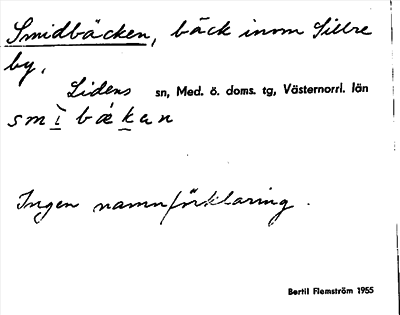 Smidbäcken, bäck inom Sillre
by.
Lidens sn, Med. ö. doms. tg, Västernorrl. län
smìbǽkan
Ingen namnförklaring.
Bertil Flemström 1955